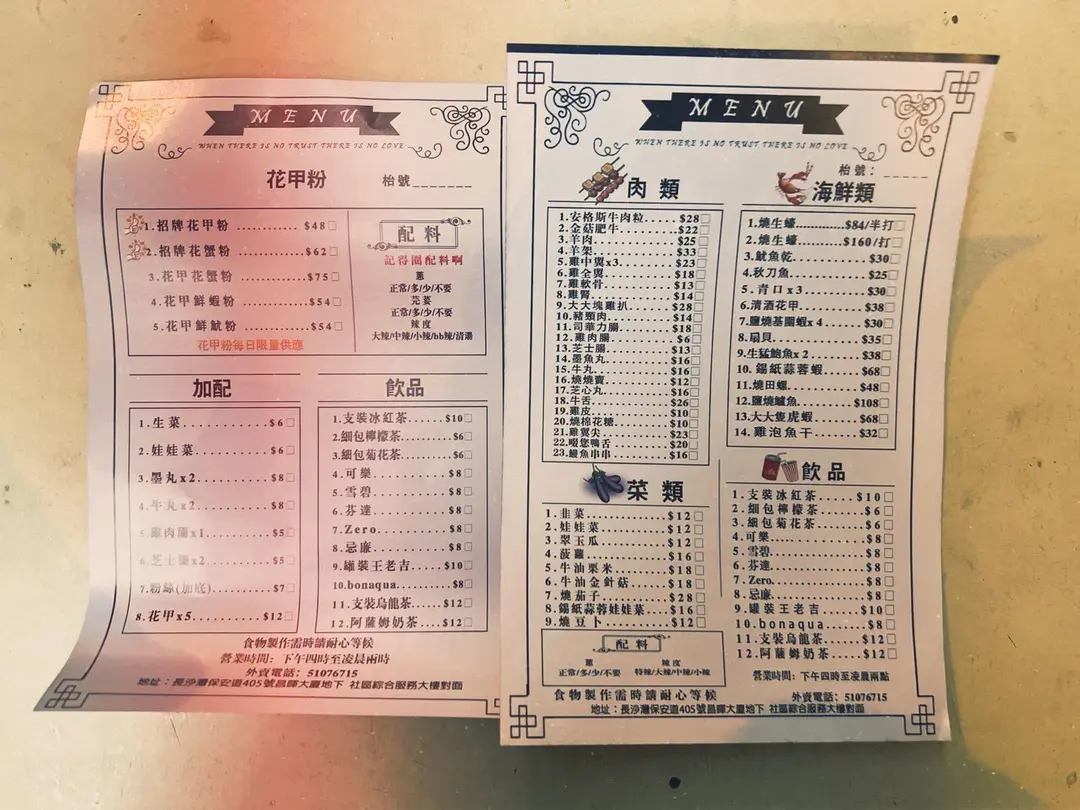 MENU
WHEN THERE IS NO TRUST THERE IS NO LOVE
花甲粉 枱號_______
1.招牌花甲粉 ............ $48□
2.招牌花蟹粉 ............ $62□
3.花甲花蟹粉 ............ $75□
4.花甲鮮蝦粉 ............ $54□
5.花甲鮮魷粉 ............ $54□
花甲粉每日限量供應
配料
記得圈配料啊
蔥
正常/多/少/不要
芫荽
正常/多/少/不要
辣度
大辣/中辣/小辣/bb辣/清湯
加配
1.生菜..........$6□
2.娃娃菜..........$6□
3.墨丸x2..........$8□
4.牛丸x2..........$8□
5.雞肉腸x1..........$5□
6.芝士腸x2..........$5□
7.粉絲(加底)..........$7□
8.花甲x5..........$12□
飲品
1.支裝冰紅茶......$10□
2.細包檸檬茶......$6□
3.細包菊花茶......$6□
4.可樂..........$8□
5.雪碧..........$8□
6.芬達..........$8□
7.Zero..........$8□
8.忌廉..........$8□
9.罐裝王老吉.....$10□
10.bonaqua.......$8□
11.支裝烏龍茶.....$12□
12.阿薩姆奶茶....$12□
食物製作需時請耐心等候
營業時間：下午四時至凌晨兩時
外賣電話：51076715
地址：長沙灣保安道405號昌暉大廈地下 社區綜合服務大樓對面
MENU
WHEN THERE IS NO TRUST THERE IS NO LOVE
枱號：_____
肉類
1.安格斯牛肉粒.....$28□
2.金菇肥牛..........$22□
3.羊肉..........$25□
4.羊架..........$33□
5.雞中翼x3.......$23□
6.雞全翼..........$18□
7.雞軟骨..........$13□
8.雞腎..........$14□
9.大大塊雞扒.......$28□
10.豬頸肉..........$14□
11.司華力腸........$18□
12.雞肉腸..........$6□
13.芝士腸..........$13□
14.墨魚丸..........$16□
15.牛丸..........$16□
16.燒燒賣..........$12□
17.芝心丸..........$16□
18.牛舌..........$26□
19.雞皮..........$10□
20.燒棉花糖........$10□
21.雞翼尖..........$23□
22.啜您鴨舌........$20□
23.鰻魚串串........$16□
海鮮類
1.燒生蠔............$84/半打□
2.燒生蠔..........$160/打□
3.魷魚乾..........$30□
4.秋刀魚..........$25□
5.青口x3.........$30□
6.清酒花甲..........$38□
7.鹽燒基圍蝦x4.......$30□
8.扇貝..........$35□
9.生猛鮑魚x2........$38□
10.錫紙蒜蓉蝦.......$68□
11.燒田螺..........$48□
12.鹽燒鱸魚........$108□
13.大大隻虎蝦.......$68□
14.雞泡魚干........$32□
菜類
1.韭菜..........$12□
2.娃娃菜..........$12□
3.翠玉瓜..........$12□
4.菠蘿..........$16□
5.牛油粟米........$18□
6.牛油金針菇......$18□
7.燒茄子..........$28□
8.錫紙蒜蓉娃娃菜...$16□
9.燒豆卜..........$12□
飲品
1.支裝冰紅茶......$10□
2.細包檸檬茶......$6□
3.細包菊花茶......$6□
4.可樂..........$8□
5.雪碧..........$8□
6.芬達..........$8□
7.Zero..........$8□
8.忌廉..........$8□
9.罐裝王老吉.....$10□
10.bonaqua.......$8□
11.支裝烏龍茶.....$12□
12.阿薩姆奶茶....$12□
配料
蔥 辣度
正常/多/少/不要 特辣/大辣/中辣/小辣
營業時間：下午四時至凌晨兩點
食物製作需時請耐心等候 外賣電話：51076715
地址：長沙灣保安道405號昌暉大廈地下 社區綜合服務大樓對面